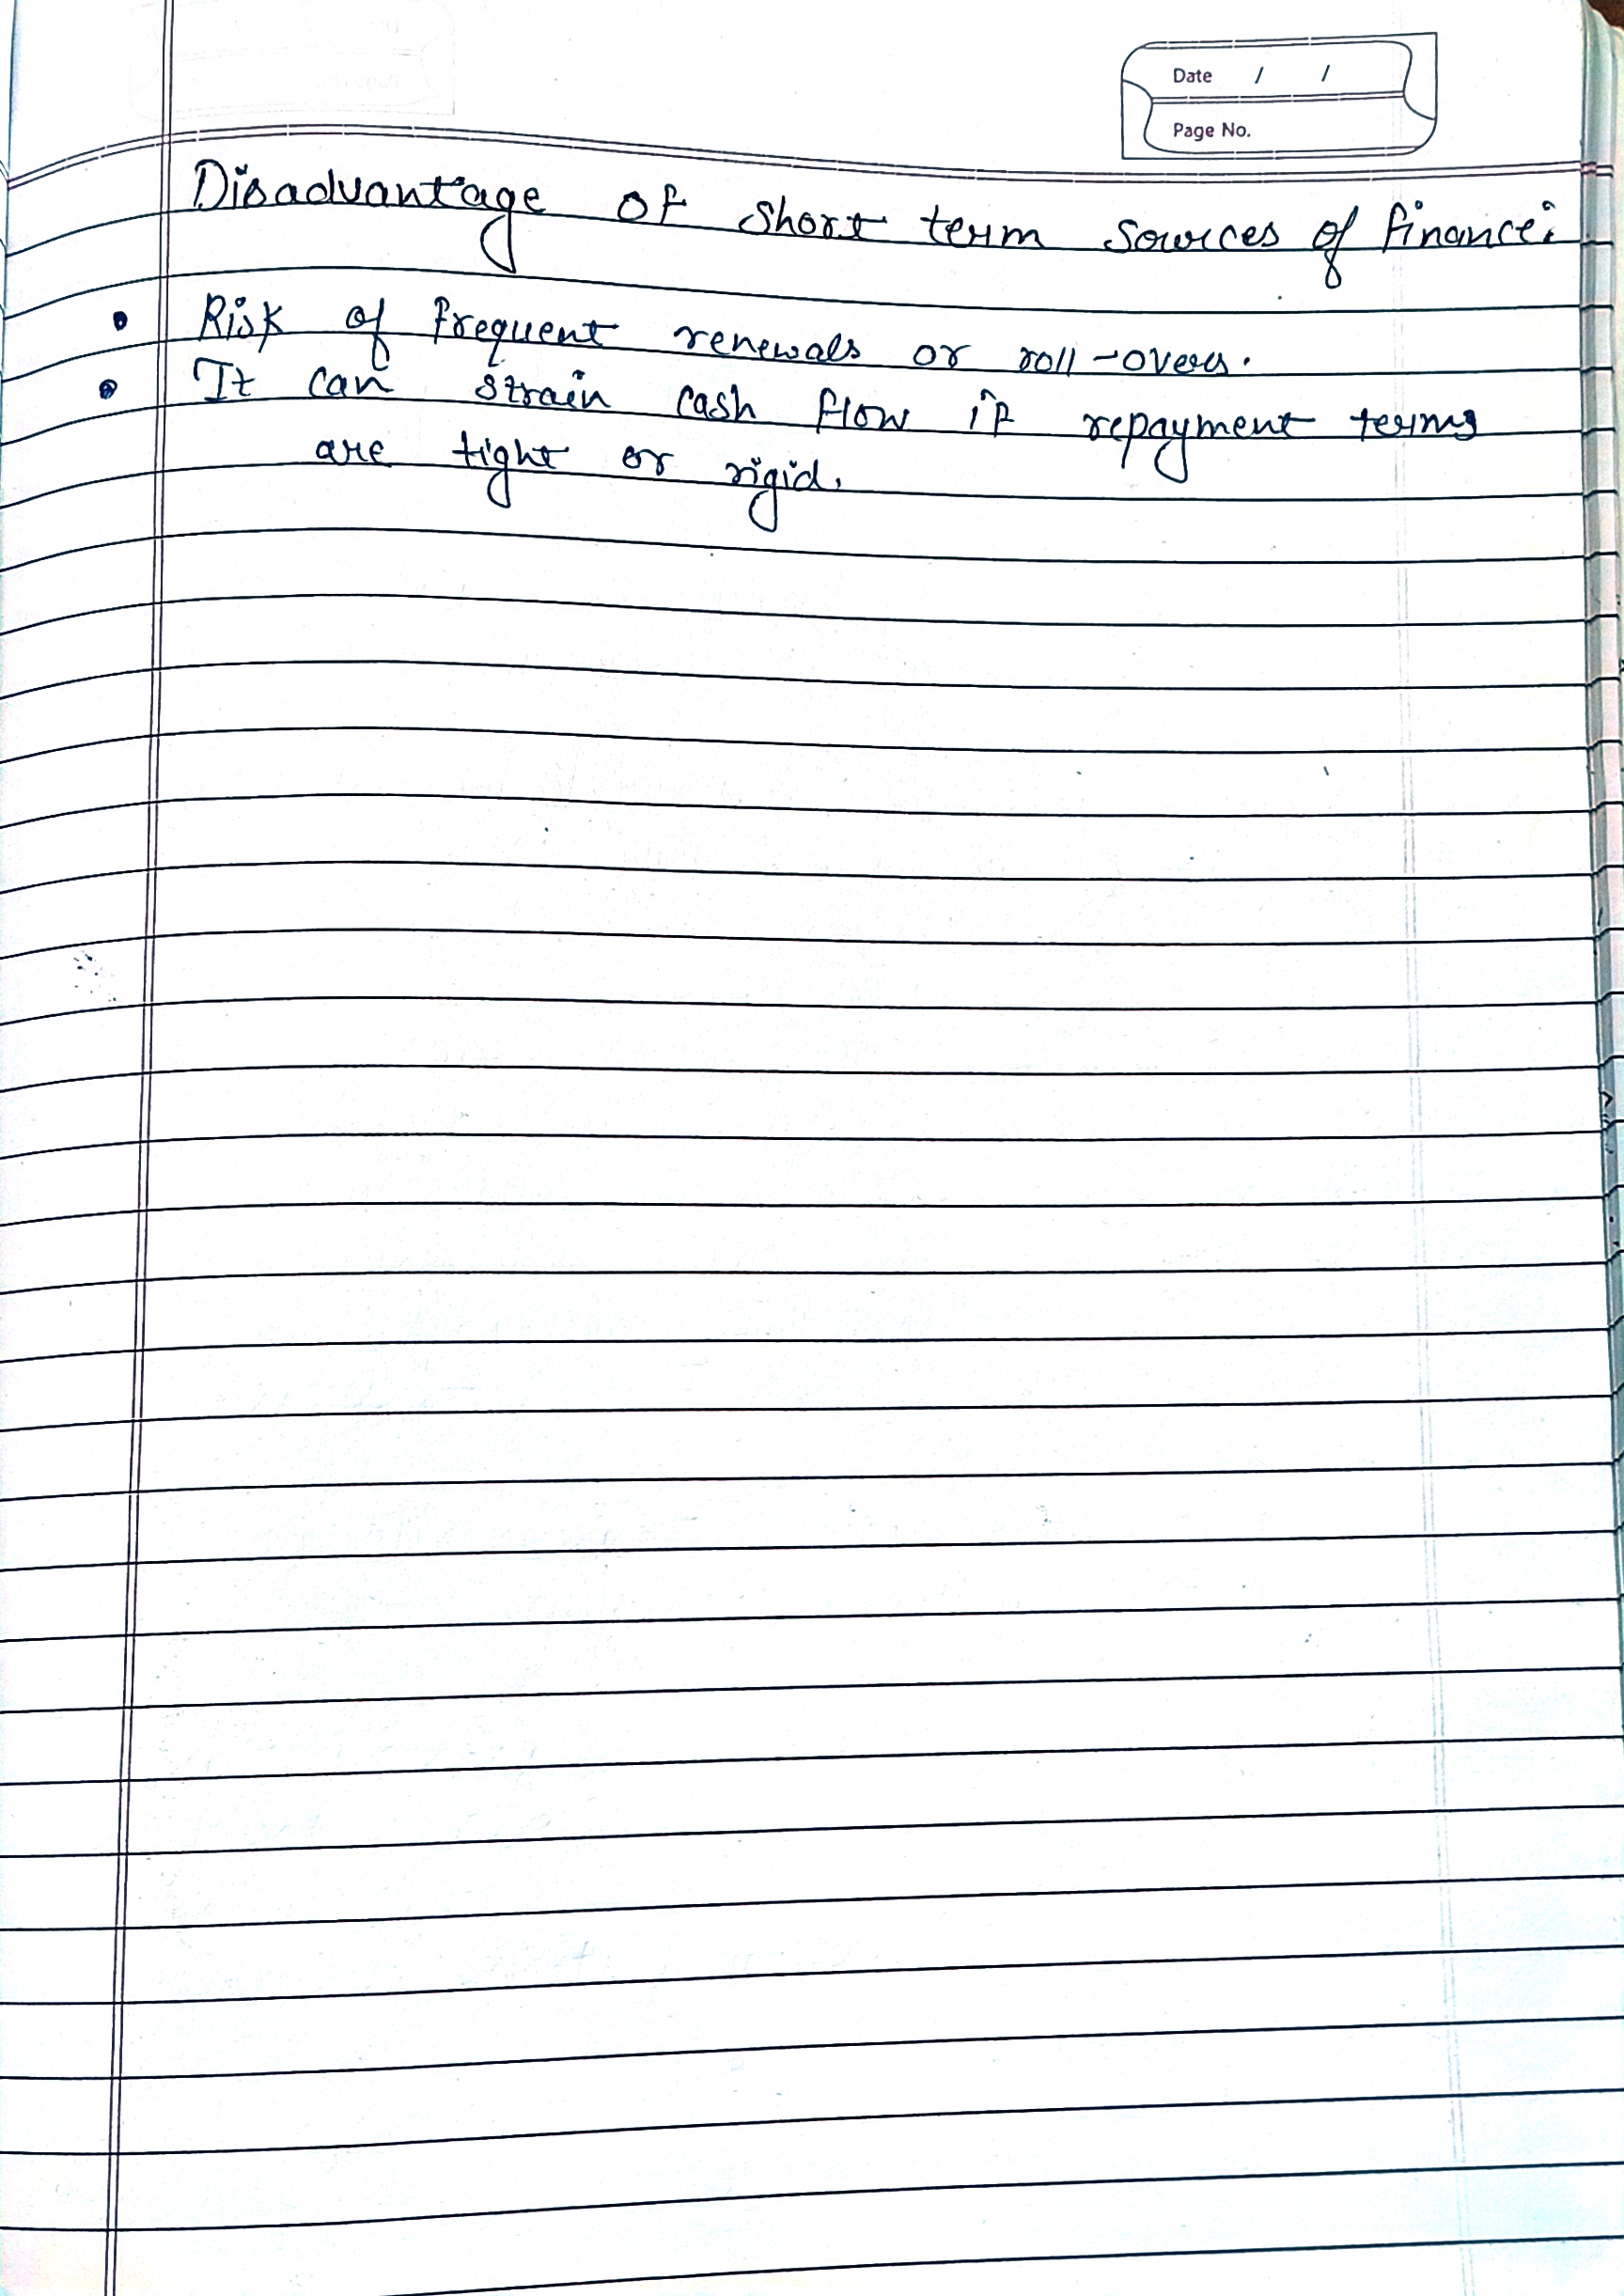 Date / /
Page No.
Disadvantage of short term sources of finance:
• Risk of frequent renewals or roll-overs.
• It can strain cash flow if repayment terms
are tight or rigid.